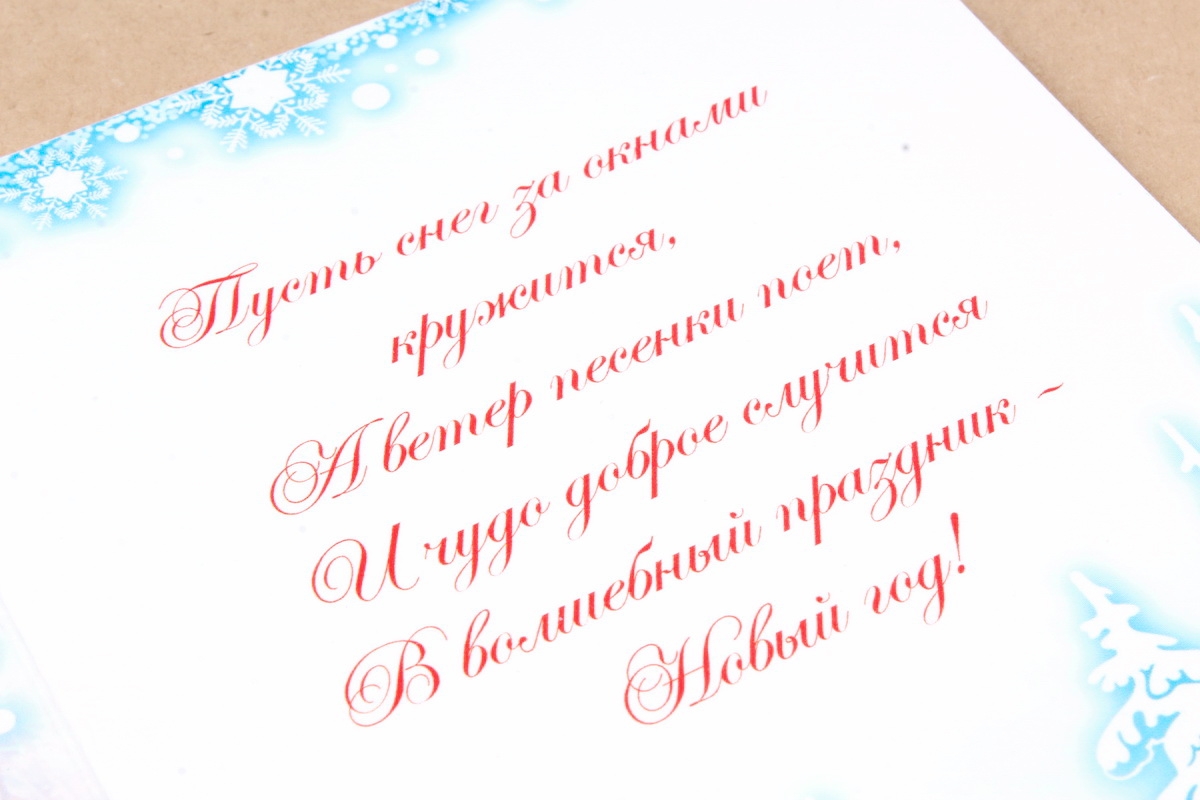 Пусть снег за окнами
кружится,
А ветер песенки поет,
И чудо доброе случится
В волшебный праздник –
Новый год!